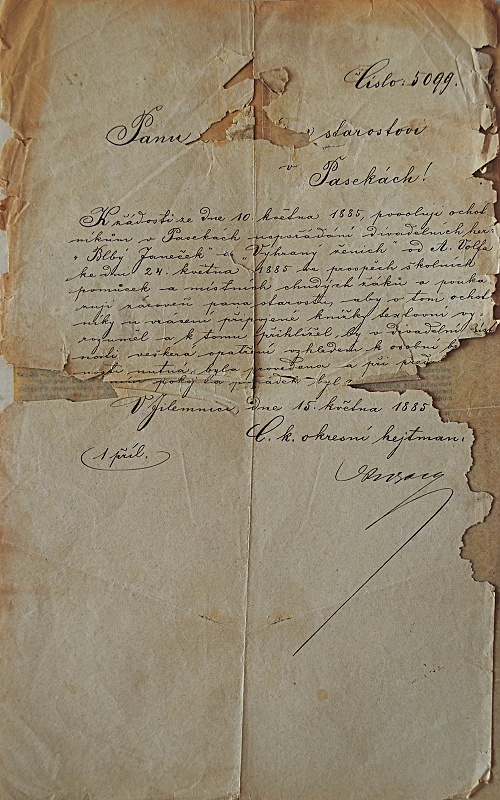 Číslo: 5099.
Panu starostovi
v
Pasekách!
K žádosti ze dne 10. května 1885, povoluji ochot
níkům v Pasekách uspořádání divadelních her
"Blbý Janeček" a "Vybraný ženich" od A. Volfa
ke dni 24. května 1885 ve prospěch školních
pomůcek a místních chudých žáků a pouka
zuji zároveň pana starostu, aby o tom ochot
níky u vrácení připojené knížky textovní vy
rozuměl a k tomu přihlížel, by v divadelní
nosti veškerá opatření vzhledem k osobní
nosti nutná, byla provedena a při
pořádek byl
V Jilemnici, dne 15. května 1885
C. k. okresní hejtman:
1 příl.